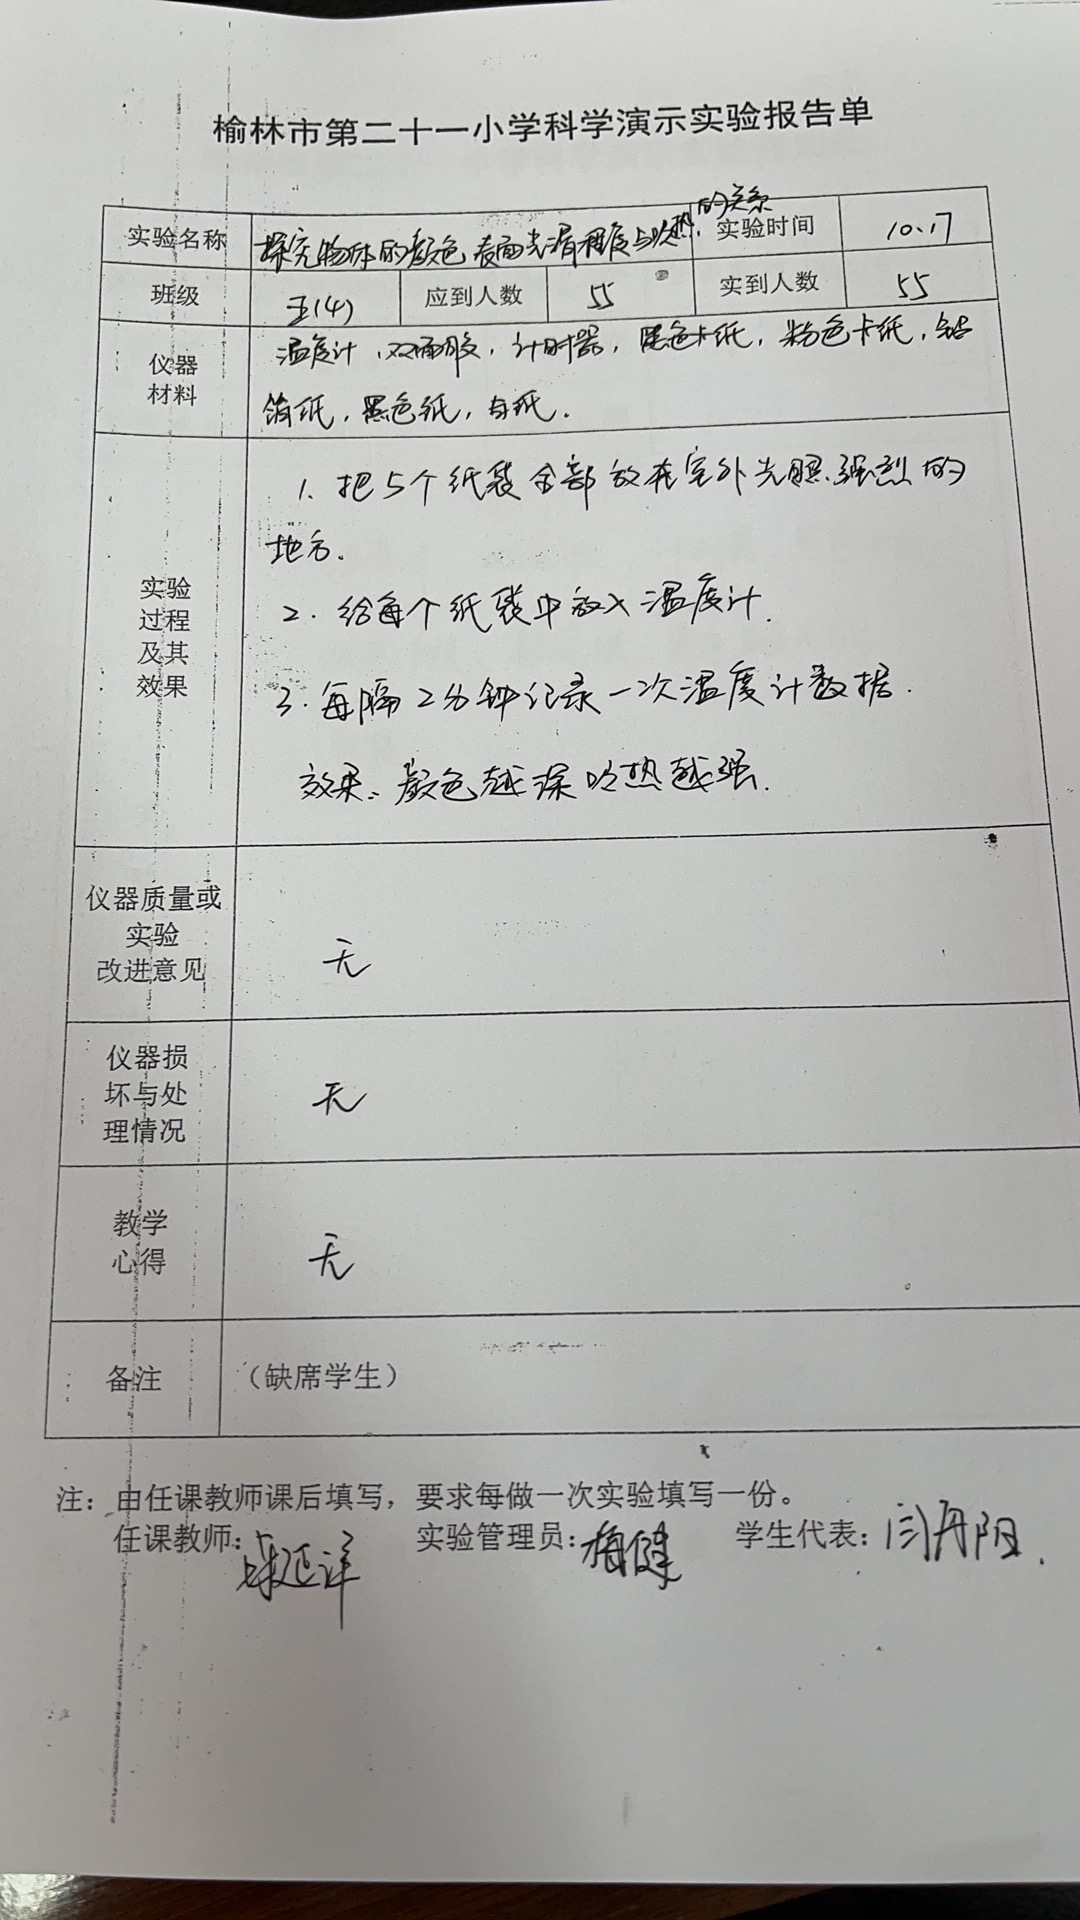 榆林市第二十一小学科学演示实验报告单
实验名称 探究物体的颜色表面光滑程度与吸热的关系 实验时间 10.17
班级 五(4) 应到人数 55 实到人数 55
仪器
材料
温度计,双面胶,计时器,黑色卡纸,粉色卡纸,铝
箔纸,黑色纸,白纸.
实验
过程
及其
效果
1、把5个纸袋全部放在室外光照强烈的
地方.
2. 给每个纸袋中放入温度计.
3. 每隔2分钟记录一次温度计数据.
效果:颜色越深吸热越强.
仪器质量或
实验
改进意见
无
仪器损
坏与处
理情况
无
教学
心得
无
备注 (缺席学生)
注:由任课教师课后填写,要求每做一次实验填写一份。
任课教师: 实验管理员: 学生代表:闫丹阳.